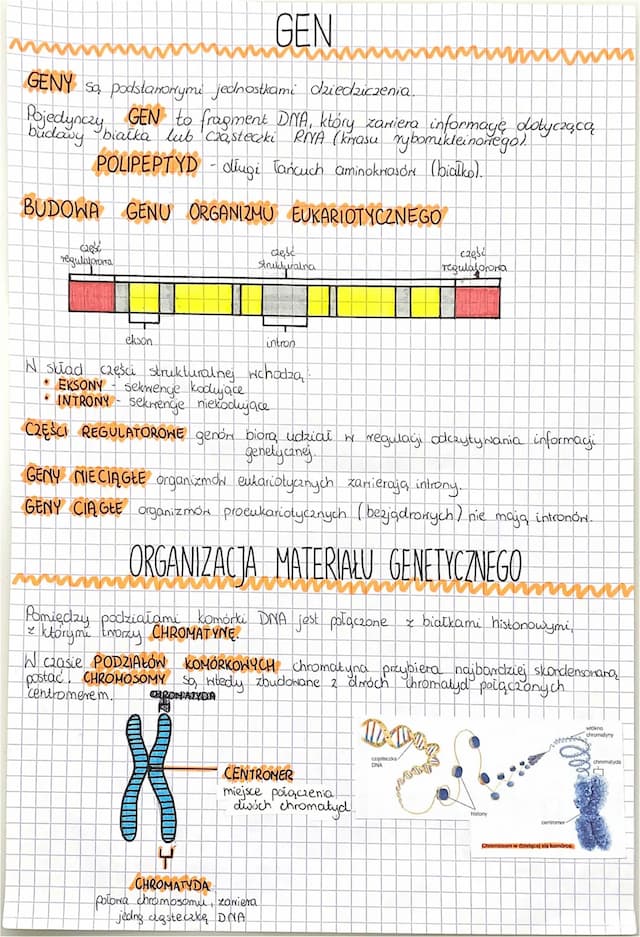 GEN
GENY są podstawowymi jednostkami dziedziczenia.
Pojedynczy GEN to fragment DNA, który zawiera informację dotyczącą
budowy białka lub cząsteczki RNA (kwasu rybonukleinowego).
POLIPEPTYD - długi łańcuch aminokwasów (białko).
BUDOWA GENU ORGANIZMU EUKARIOTYCZNEGO
część
regulatorowa
część
strukturalna
część
regulatorowa
ekson
intron
W skład części strukturalnej wchodzą:
• EKSONY - sekwencje kodujące
• INTRONY - sekwencje niekodujące
CZĘŚCI REGULATOROWE genów biorą udział w regulacji odczytywania informacji
genetycznej.
GENY NIECIĄGŁE organizmów eukariotycznych zawierają introny.
GENY CIĄGŁE organizmów prokariotycznych (bezjądrowych) nie mają intronów.
ORGANIZACJA MATERIAŁU GENETYCZNEGO
Pomiędzy podziałami komórki DNA jest połączone z białkami histonowymi,
z którymi tworzy CHROMATYNĘ.
W czasie PODZIAŁÓW KOMÓRKOWYCH chromatyna przybiera najbardziej skondensowaną
postać. CHROMOSOMY są wtedy zbudowane z dwóch chromatyd połączonych
centromerem.
CHROMATYDA
CENTROMER
miejsce połączenia
dwóch chromatyd
CHROMATYDA
połowa chromosomu, zawiera
jedną cząsteczkę DNA
cząsteczka
DNA
histony
włókno
chromatyny
chromatyda
centromer
Chromosom w dzielącej się komórce.